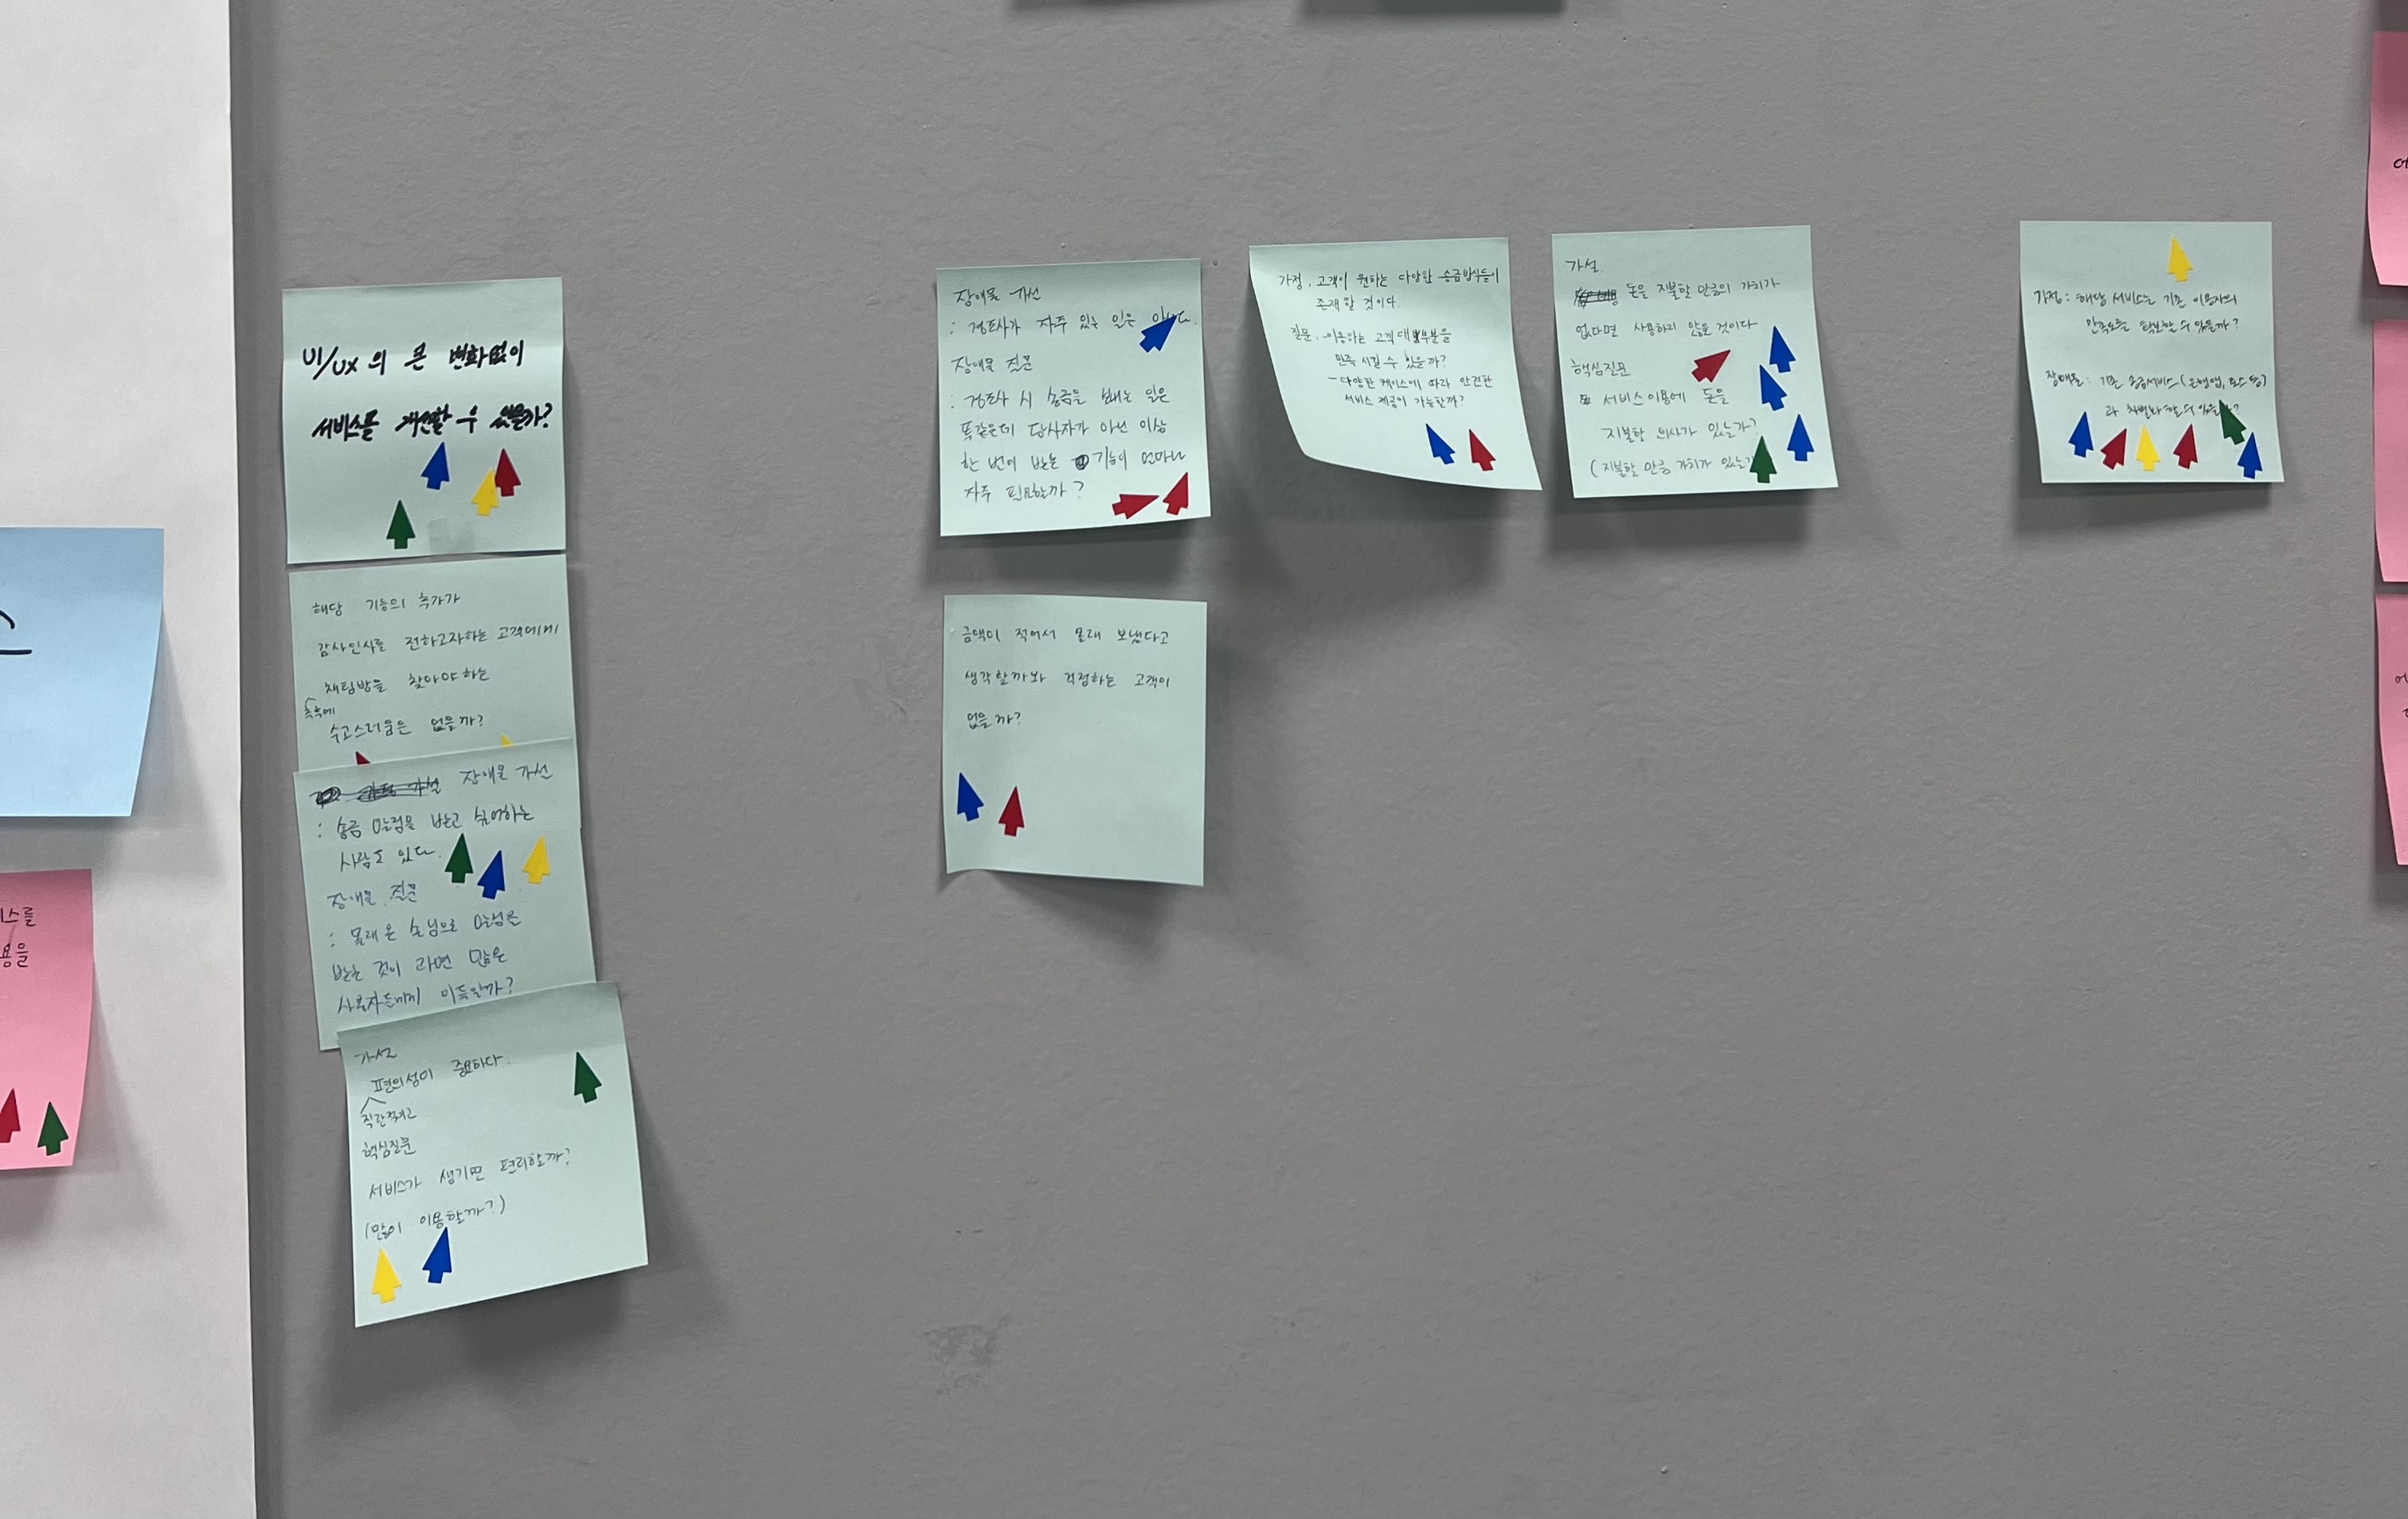 UI/UX의 큰 변화없이
서비스를 개선할 수 있을까?
해당 기능의 추가가
감사인사를 전하고자하는 고객에게
채팅방을 찾아야하는
추후에
수고스러움은 없을까?
장애물 가선
: 송금 알림을 받고 싶어하는
사람도 있다.
장애물 질문
: 몰래 온 손님으로 알림을
받는 것이 과연 많은
사용자들에게 이득일까?
가설
편의성이 중요하다.
직관적이고
핵심질문
서비스가 생기면 편리할까?
(많이 이용할까?)
장애물 가선
: 경조사가 자주 있는 일은
장애물 질문
: 경조사 시 송금을 보내는 일은
똑같은데 당사자가 아닌 이상
한 번에 받는 기능이 얼마나
자주 필요할까?
금액이 적어서 몰래 보냈다고
생각할까봐 걱정하는 고객이
없을까?
가정. 고객이 원하는 다양한 송금방식들이
존재할 것이다.
질문. 이용하는 고객 대부분을
만족 시킬 수 있을까?
- 다양한 케이스에 따라 안전한
서비스 제공이 가능할까?
가설.
돈을 지불할 만큼의 가치가
없다면 사용하지 않을 것이다
핵심질문
서비스이용에 돈을
지불할 의사가 있는가?
(지불할 만큼 가치가 있는가
가정: 해당 서비스는 기존 이용자의
만족도를 확보할 수 있을까?
장애물: 기존 송금서비스(은행앱, 토스 등)
과 차별화 할 수 있을
스를
용을